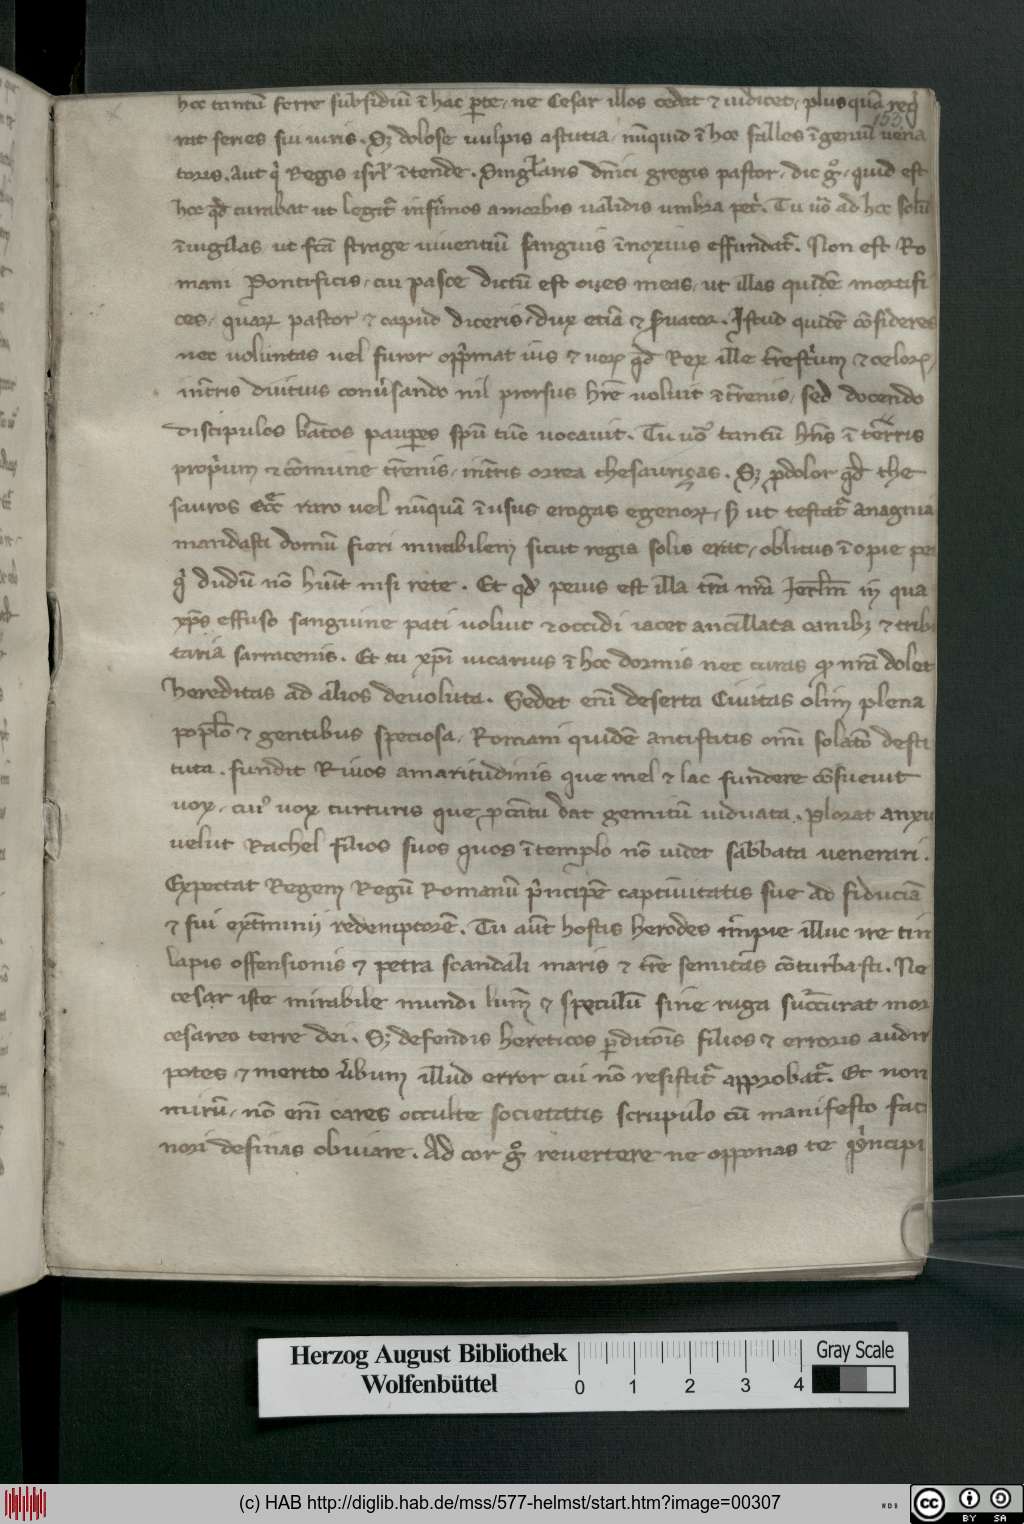 hoc tantū ferre subsidiū ī hac ꝑte, ne Cesar illos cedat ⁊ iudicet, plus quā req̇
rat series sui iuris. Sꝫ dolose uulpis astutia, nūquid ī hoc falles īgeniū uena
toris, aut Regis isrl̄ ītende. Singl̄aris dn̄ici gregis pastor, dic gͦ, quid est
hoc qd̄ curabat ut legit᷑ infirmos a morbis ualidis umbra pet̉. Tu uͦo ad hoc solū
īuigilas ut fc̄a strage uiuentiū sanguis īnoxius effundat᷑. Non est Ro
mani Pontificis, cui pasce dictū est oues meas, ut illas quidē mortifi
ces, quaꝝ pastor ⁊ caput diceris, dux etiā ⁊ ẜuator. Istud quidē cōsideres
nec uoluntas uel furor opp̄mat ius ⁊ ueꝝ qd̄ Rex ille t̄rest̉um ⁊ celoꝝ,
īnt̄ris diuitiis conūsando nil prorsus hr̄e uoluit ⁊ t̄renis, sed docendo
discipulos bātos pauꝑes spū tūc uocauit. Tu uͦo tantū hn̄s ī terris
prop̉um ⁊ cōmune t̄renis, īnt̄ris orrea thesaurizas. Sꝫ ꝓdolor qd̄ the
sauros Ecc̄ raro uel nūquā ī usus erogas egenoꝝ, ẜ ut testat᷑ anagnia
mandasti domū fieri mirabilem sicut regia solis erat, oblitus īopie pet
q̇ dudū nō hūit nisi rete. Et qd̄ peius est illa tr̄a nr̄a Ierl̄m in qua
xp̄s effuso sanguine pati uoluit ⁊ occidi iacet ancillata canibꝫ ⁊ tribu
taria sarracenis. Et tu xp̄i uicarius ī hoc dormis nec curas qꝫ nr̄a dolet
hereditas ad alios deuoluta. Sedet eni deserta Ciuitas olim plena
popl̄o ⁊ gentibus speciosa, Romani quidē antistitis omī solatō desti
tuta. fundit Riuos amaritudinis que mel ⁊ lac fundere cōsueuit
uox, cuiꝰ uox turturis que ꝓ cātu dat gemitū uiduata. plorat anxia
uelut Rachel filios suos quos ī templo nō uidet sabbata uenerari.
Expectat Regem Regū Romanū p̉ncipē captiuitatis sue ad fiduciā
⁊ sui ext̄minii redemptorē. Tu aūt hostis herodes īmpie illuc ire tim
lapis offensionis ⁊ petra scandali maris ⁊ tr̄e semitas cōturbasti. Ne
cesar iste mirabile mundi lum̄ ⁊ speculū sine ruga succurat mor
cesareo terre dei. Sꝫ defendis hereticos ꝑditōis filios ⁊ erroris audir
potes ⁊ merito ūbum illud error cui nō resistit᷑ approbat᷑. Et non
mirū, nō eni cares occulte societatis scrupulo cū manifesto faci
nori desinas obuiare. Ad cor gͦ reuertere ne opponas te p̉ncipi
Herzog August Bibliothek
Wolfenbüttel
0 1 2 3 4
Gray Scale
(c) HAB http://diglib.hab.de/mss/577-helmst/start.htm?image=00307
WDB
cc BY SA